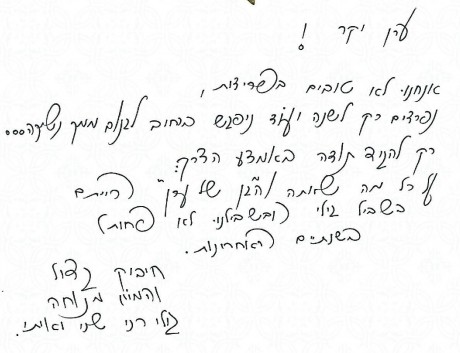 ערן יקר !
אנחנו לא טובים בפרידות,
נפרדים רק לשנה ועוד ניפגש ברחוב לבנות ממך
רק להגיד תודה באמצע הדרך
על כל מה שאתה והגן של ערן הייתם
בשביל גילי (ובשבילנו לא פחות)
בשנתיים האחרונות.
חיבוק גדול
והמון מנוחה
גילי רני שני